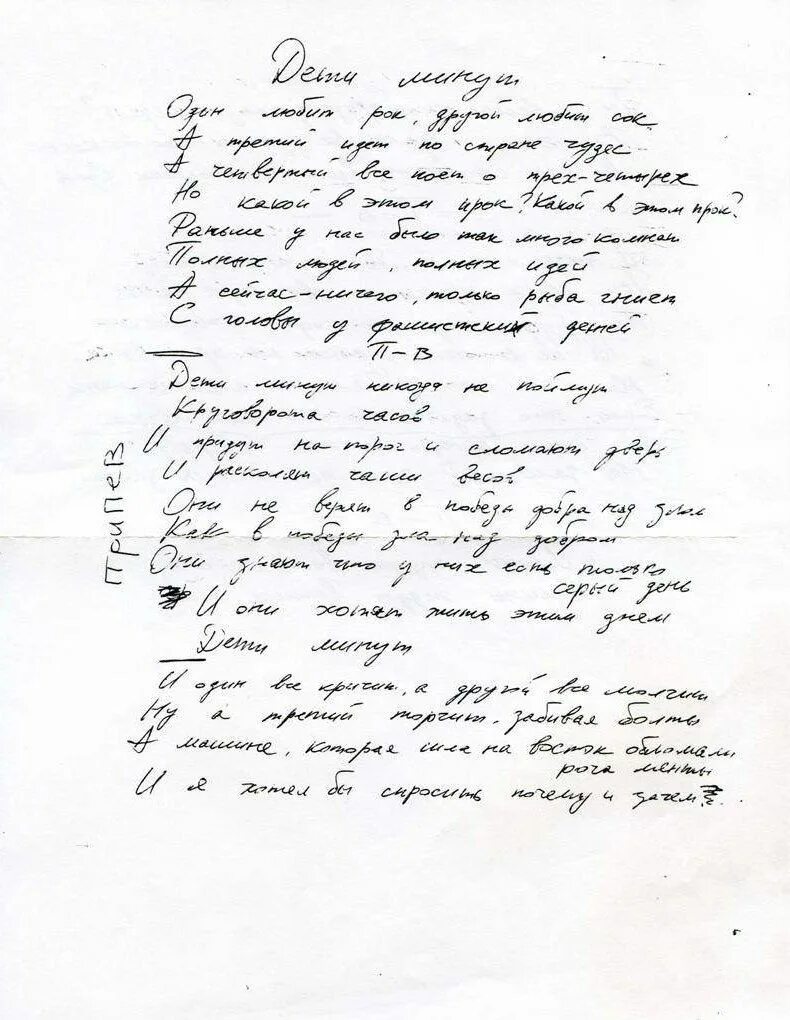 Дети минут
Один любит рок, другой любит сок
А третий идет по стране чудес
А четвертый все поёт о трех-четырех
Но какой в этом прок? Какой в этом прок?
Раньше у нас было так много комнат
Полных людей, полных идей
А сейчас-ничего, только рыба гниет
С головы у фашистских детей
П-В
Дети минут никогда не поймут
Круговорота часов
И придут на порог и сломают дверь
И расколят чаши весов
Они не верят в победы добра над злом
Как в победы зла над добром
Они знают что у них есть только
серый день
И они хотят жить этим днем
Дети минут
ПриПеВ
И один все кричит, а другой все молчит
Ну а третий торчит, забивая болты
А машине, которая шла на восток обломали
рога менты
И я хотел бы спросить почему и зачем